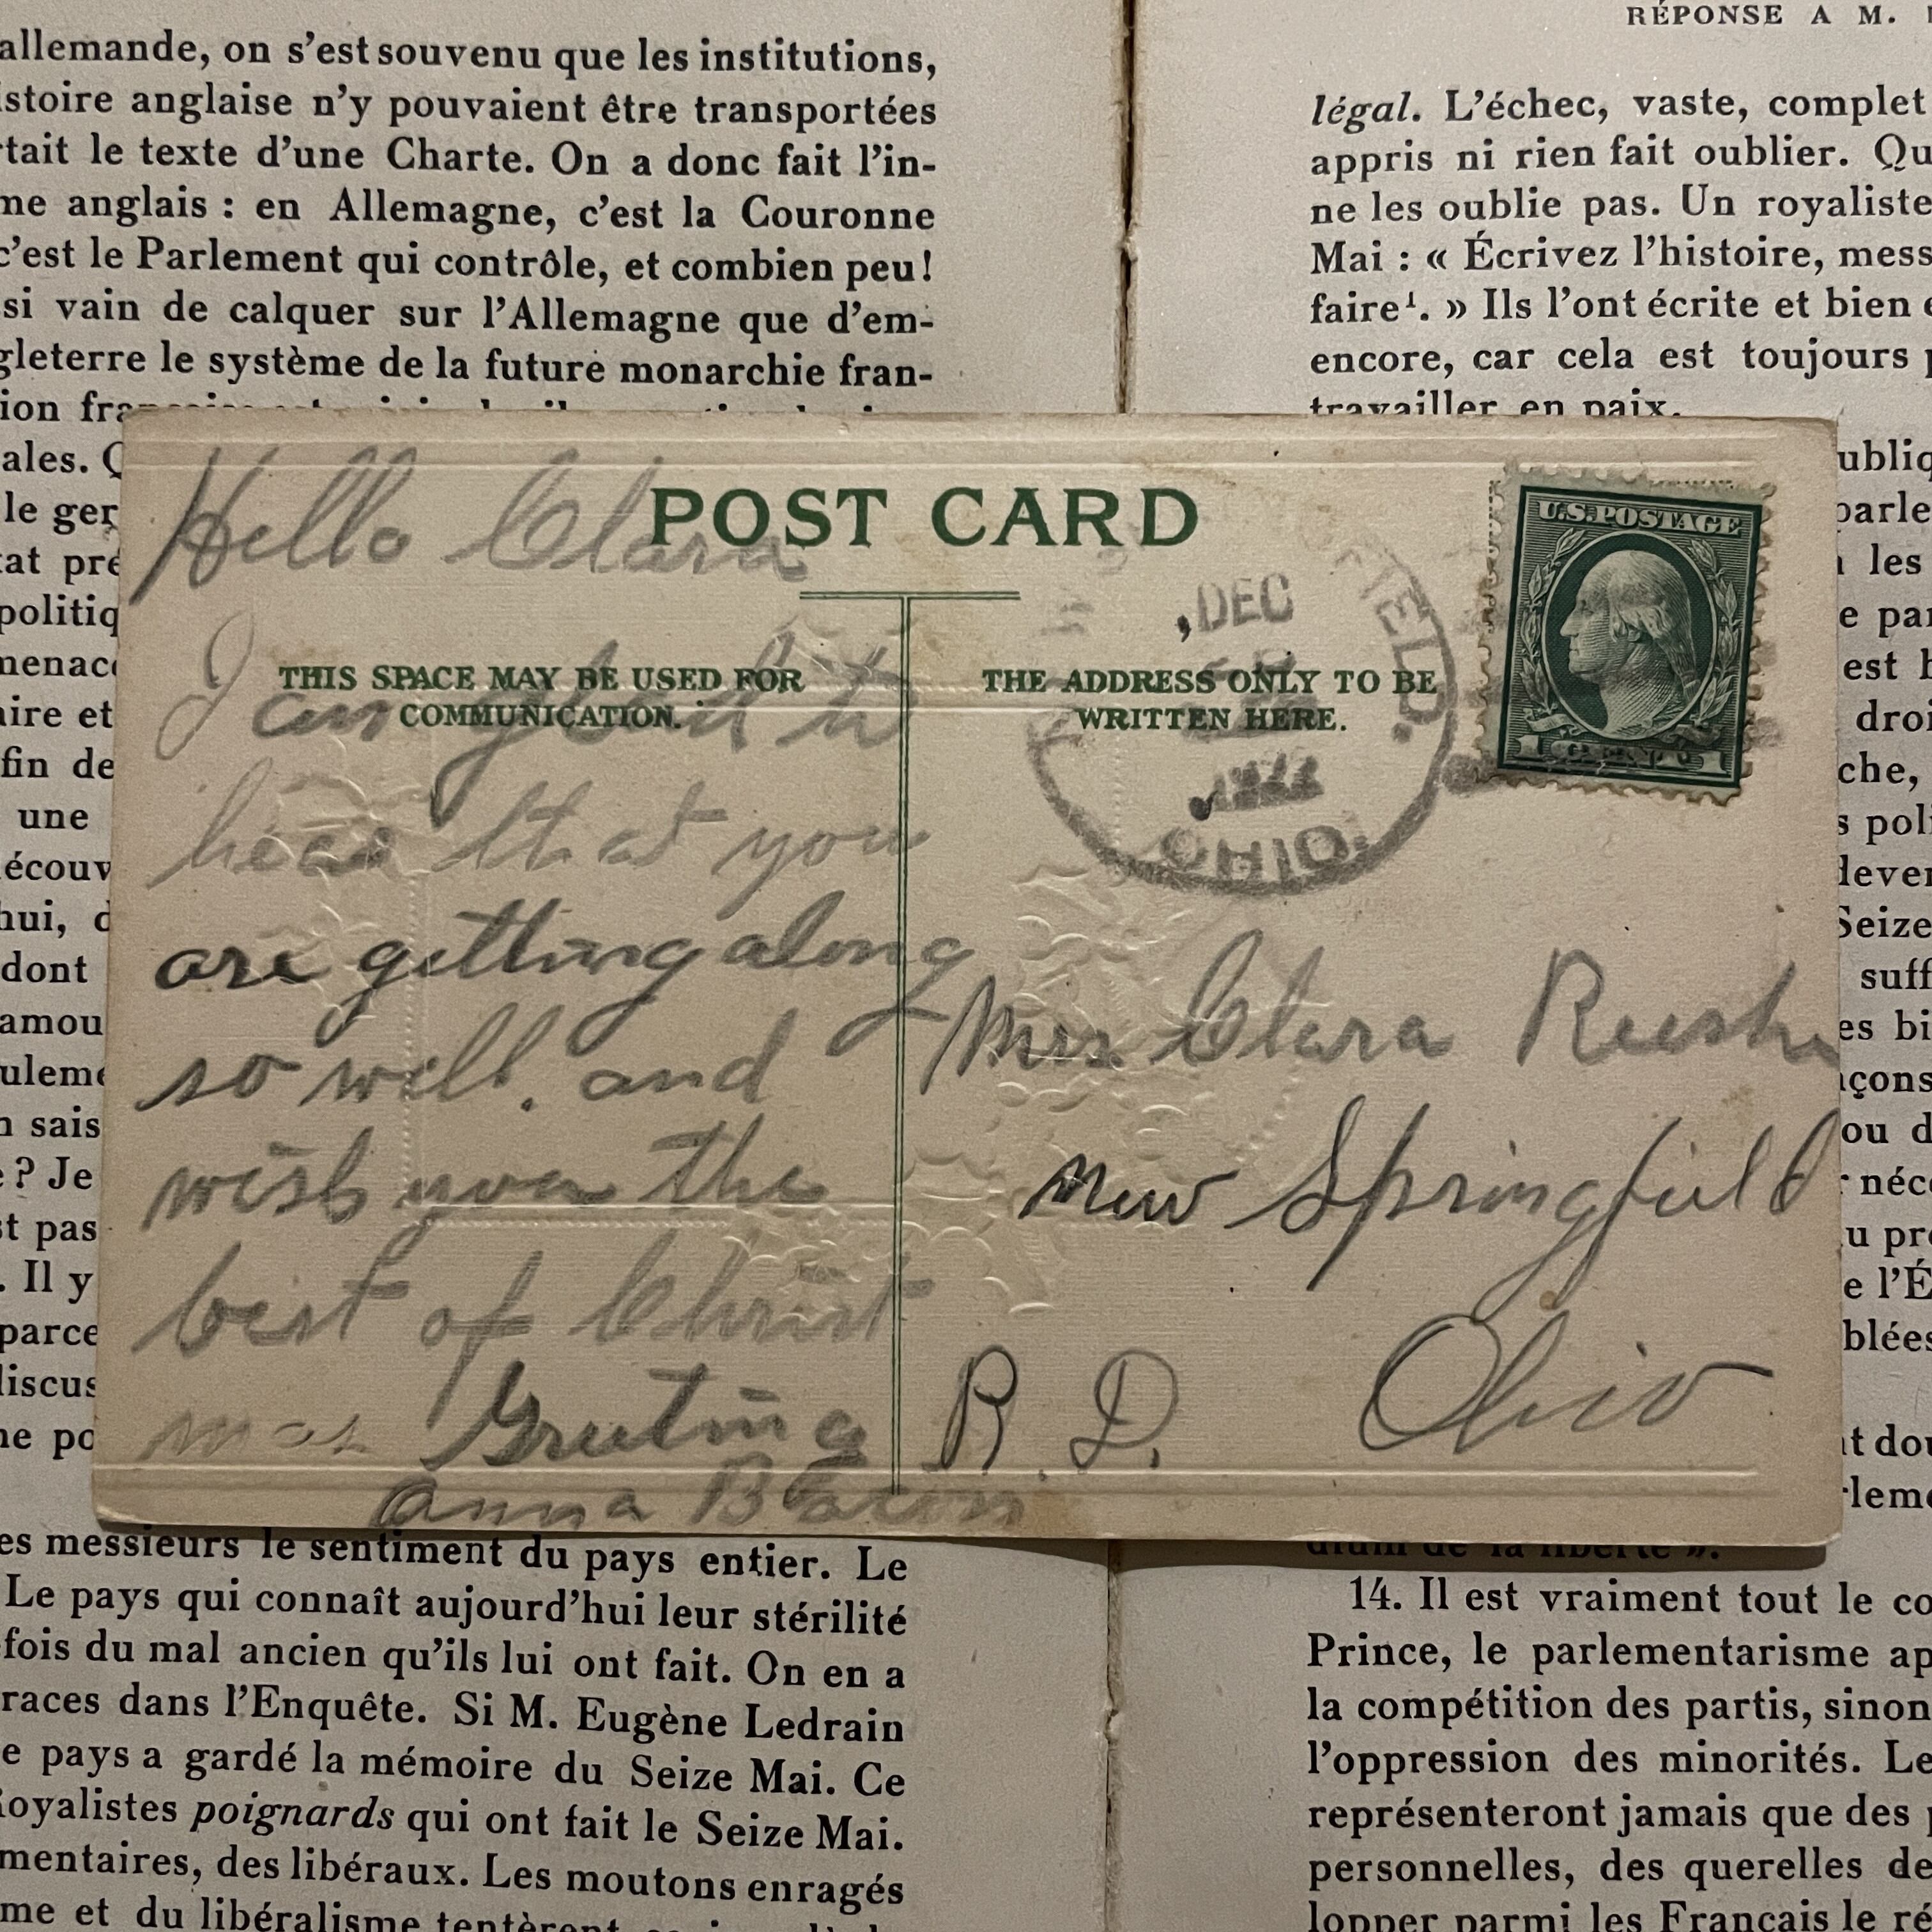 allemande, on s'est souvenu que les institutions,
istoire anglaise n'y pouvaient être transportées
tait le texte d'une Charte. On a donc fait l'in-
me anglais : en Allemagne, c'est la Couronne
c'est le Parlement qui contrôle, et combien peu!
si vain de calquer sur l'Allemagne que d'em-
gleterre le système de la future monarchie fran-
ion
ales.
le ger
tat pré
politiq
menace
aire et
fin de
une
écouv
hui, d
dont
amou
uleme
sais
? Je
st pas
. Il y
parce
discus
ne po
RÉPONSE A M.
légal. L'échec, vaste, complet
appris ni rien fait oublier. Qu
ne les oublie pas. Un royaliste
Mai : « Écrivez l'histoire, mess
faire¹. » Ils l'ont écrite et bien
encore, car cela est toujours
travailler en paix.
ubliq
parle
les
e par
est
droi
che,
s poli
deven
Seize
suff
es bi
çons
ou d
néce
u pré
e l'É
blées
t dou
rleme
POST CARD
THIS SPACE MAY BE USED FOR
COMMUNICATION.
THE ADDRESS ONLY TO BE
WRITTEN HERE.
U.S. POSTAGE
1 CENT 1
FIELD.
DEC
OHIO.
Hello Clara
I am glad to
hear that you
are getting along
so well. and
wish you the
best of Christ
mas Greeting
Anna
Mrs Clara
New Springfield
R. D. Ohio
es messieurs le sentiment du pays entier. Le
Le pays qui connaît aujourd'hui leur stérilité
fois du mal ancien qu'ils lui ont fait. On en a
races dans l'Enquête. Si M. Eugène Ledrain
e pays a gardé la mémoire du Seize Mai. Ce
Royalistes poignards qui ont fait le Seize Mai.
mentaires, des libéraux. Les moutons enragés
me et du libéralisme
de la liberte ».
14. Il est vraiment tout le co
Prince, le parlementarisme ap
la compétition des partis, sinon
l'oppression des minorités. Le
représenteront jamais que des
personnelles, des querelles de
lopper parmi les Français le